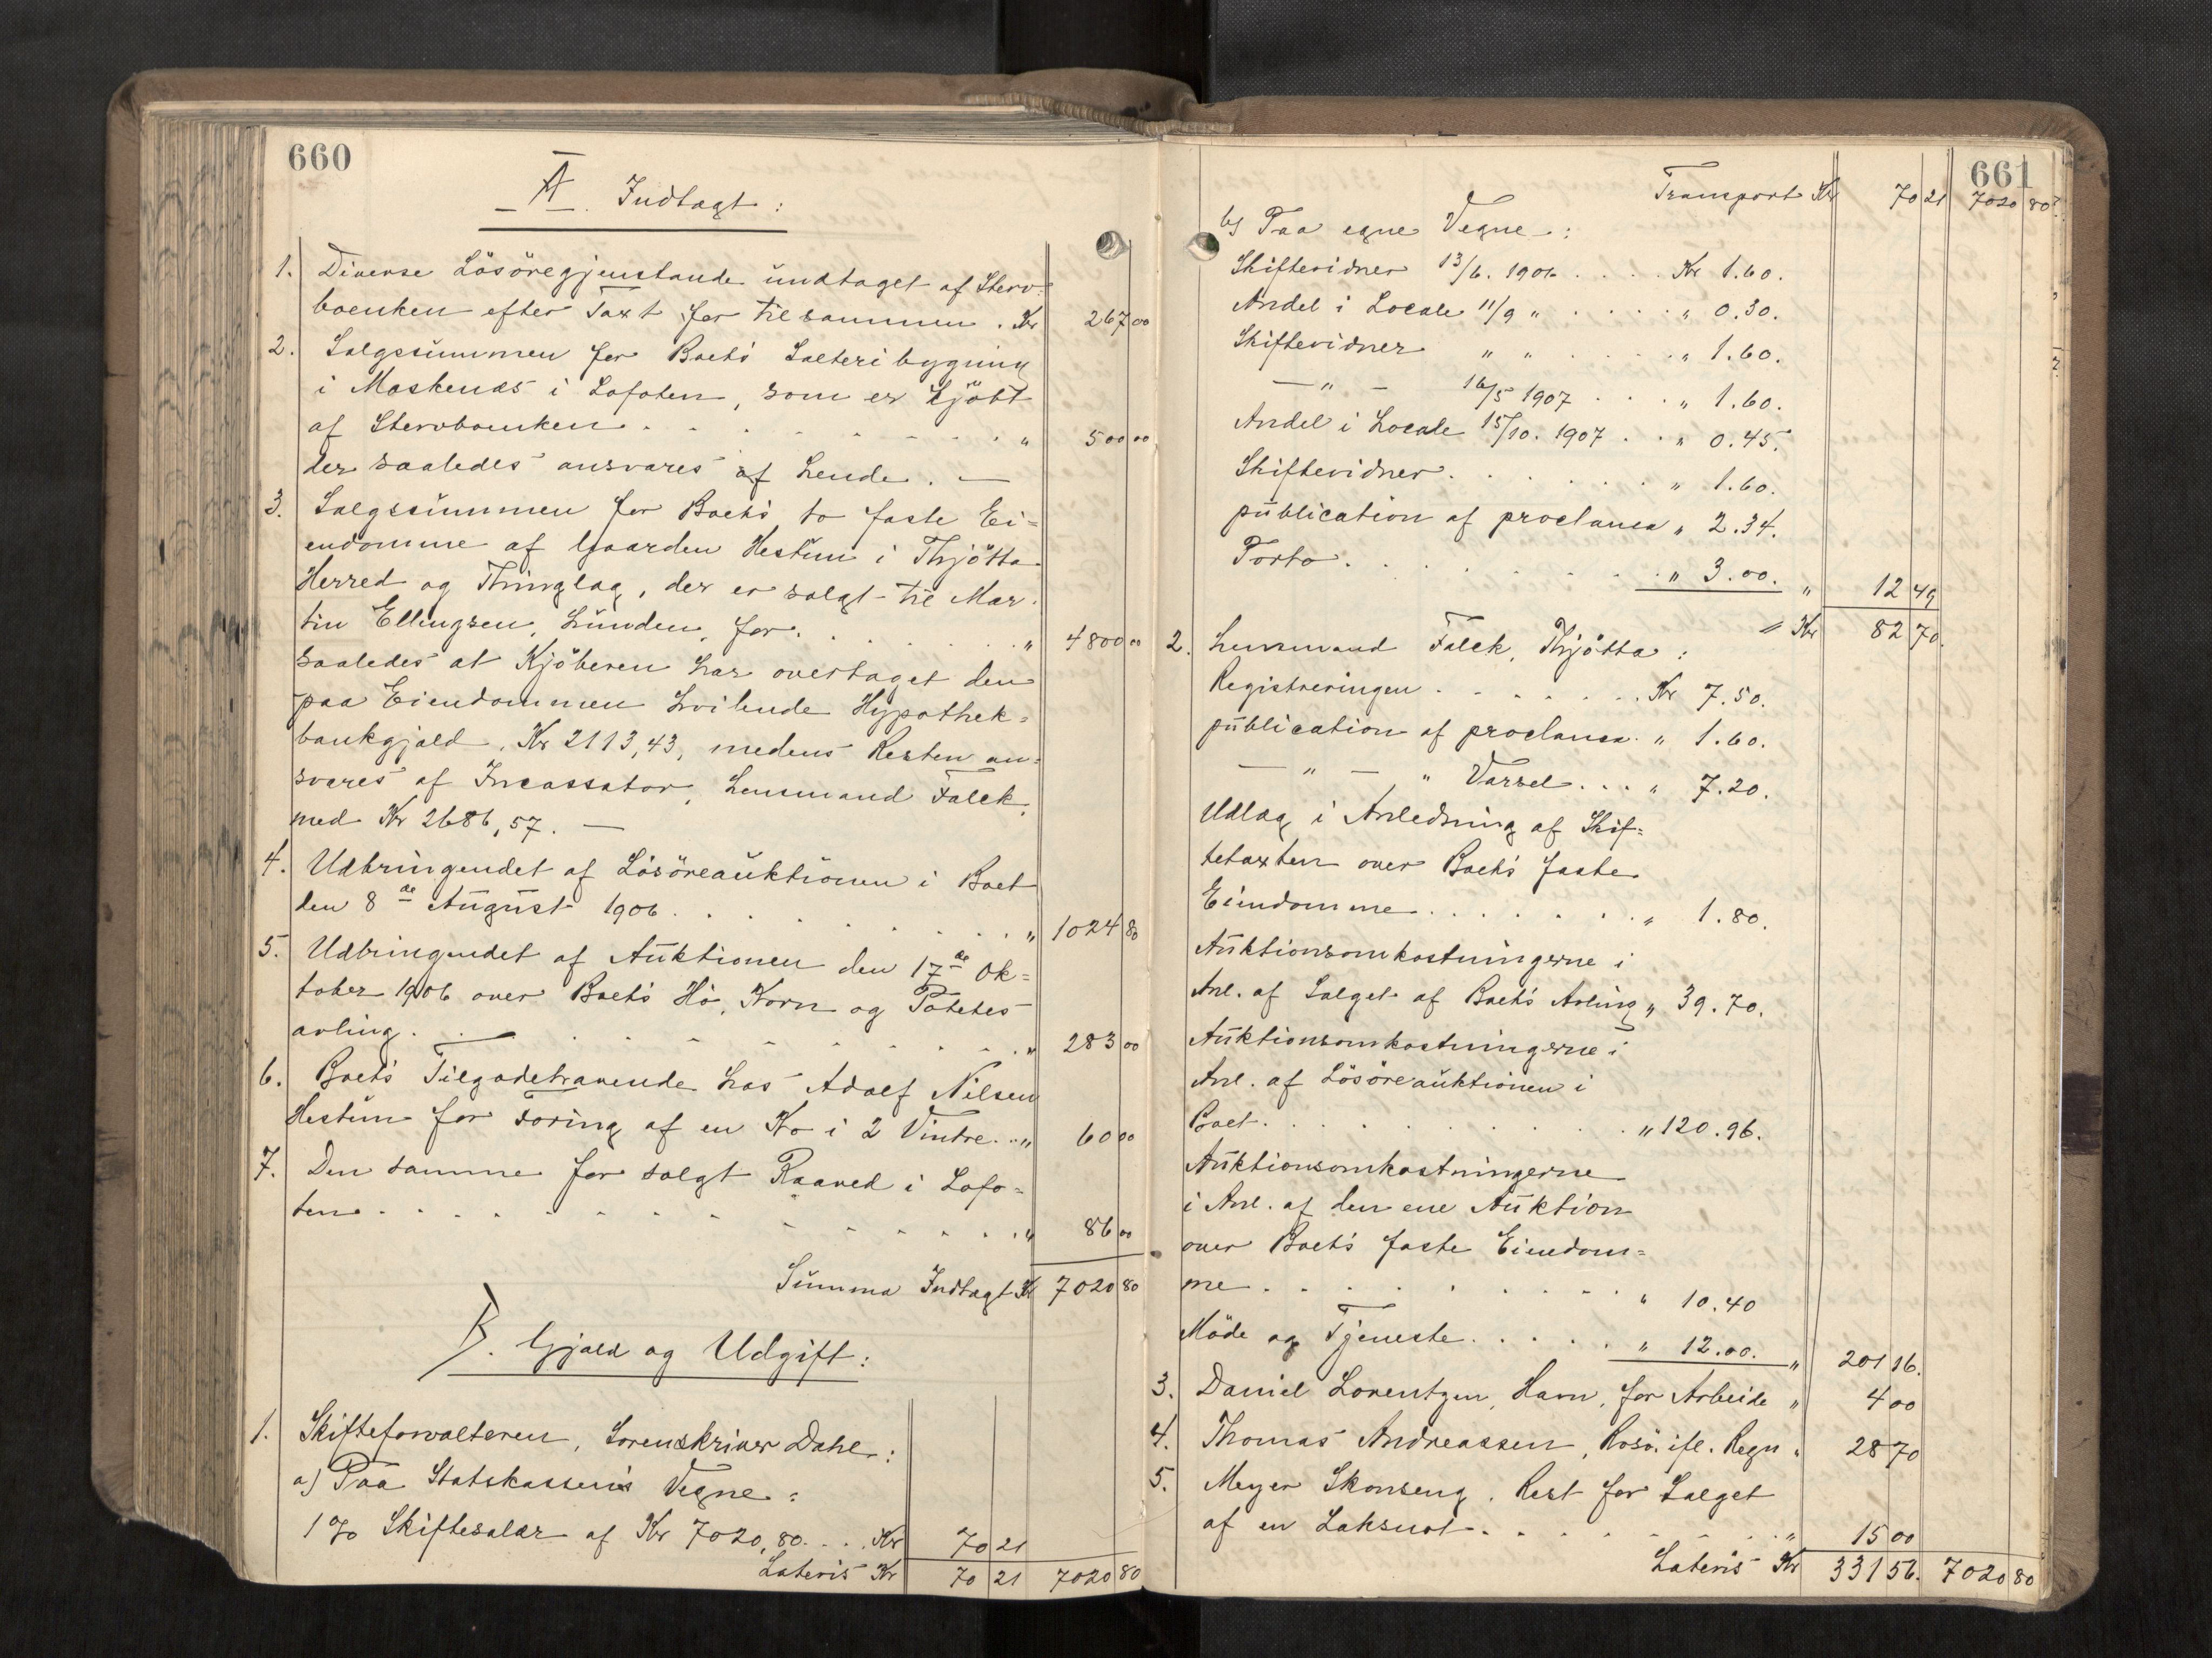 660
A. Indtægt:
1. Diverse Lösöregjenstande undtaget af Sterv-
boenken efter Taxt for tilsammen . Kr 267 00
2. Salgssummen for Boets Salteribygning
i Moskenæs i Lofoten, som er kjöbt
af Stervboenken . . . . . . . . " 500 00
der saaledes ansvares af hende. —
3. Salgssummen for Boets to faste Ei=
endomme af Gaarden Hestun i Thjötta
Herred og Thinglag, der er solgt til Mar-
tin Ellingsen, Lunden, for . . . . . . " 4800 00
saaledes at Kjöberen har overtaget den
paa Eiendommen hvilende Hypothek=
bankgjæld, Kr 2113,43, medens Resten an=
svares af Incassator, Lensmand Falck,
med Kr 2686,57. —
4. Udbringendet af Lösöreauktionen i Boet
den 8de August 1906 . . . . . . . . " 1024 80
5. Udbringendet af Auktionen den 17de Ok=
tober 1906 over Boets Hö, Korn og Potetes
avling . . . . . . . . . . " 283 00
6. Boets Tilgodehavende hos Adolf Nilsen
Hestun for Foring af en Ko i 2 Vintre . . " 60 00
7. Den samme for solgt Raaved i Lofo=
ten . . . . . . . . . . . . " 86 00
Summa Indtægt Kr 7020 80
B. Gjæld og Udgift:
1. Skifteforvalteren, Sorenskriver Dahl:
a) Paa Statskassens Vegne:
1 % Skiftesalær af Kr 7020,80 . . . Kr 70 21
Lateris Kr 70 21 7020 80
661
Transport Kr 70 21 7020 80
b) Paa egne Vegne:
Skiftevidner 13/6. 1906 . . . . Kr 1.60.
Andel i Locale 11/9 " . . . . . " 0.30.
Skiftevidner " " . . . . . " 1.60.
— " — 16/5 1907 . . . " 1.60.
Andel i Locale 15/10. 1907 . . " 0.45.
Skiftevidner . . . . . . . " 1.60.
publication af proclama " 2.34.
Porto . . . . . . . . . . " 3.00. " 12 49
= Kr 82 70.
2. Lensmand Falck, Thjötta:
Registreringen . . . . . . . Kr 7.50.
publication af proclama . " 1.60.
— " — " Varsel . . . " 7.20.
Udlæg i Anledning af Skif=
tetaxten over Boets faste
Eiendomme . . . . . . . . " 1.80.
Auktionsomkostningerne i
Anl. af Salget af Boets Avling " 39.70.
Auktionsomkostningerne i
Anl. af Lösöreauktionen i
Boet . . . . . . . . . . . " 120.96.
Auktionsomkostningerne
i Anl. af den ene Auktion
over Boets faste Eiendom=
me . . . . . . . . . . . " 10.40
Möde og Tjeneste . . . . . " 12.00. " 201 16.
3. Daniel Lorentzen, Havn, for Arbeide " 4 00
4. Thomas Andreassen, Rosö. ifl. Regn " 28 70
5. Meyer Skonseng. Rest for Salget
af en Laksnot . . . . . . . . " 15 00
Lateris Kr 331 56. 7020 80